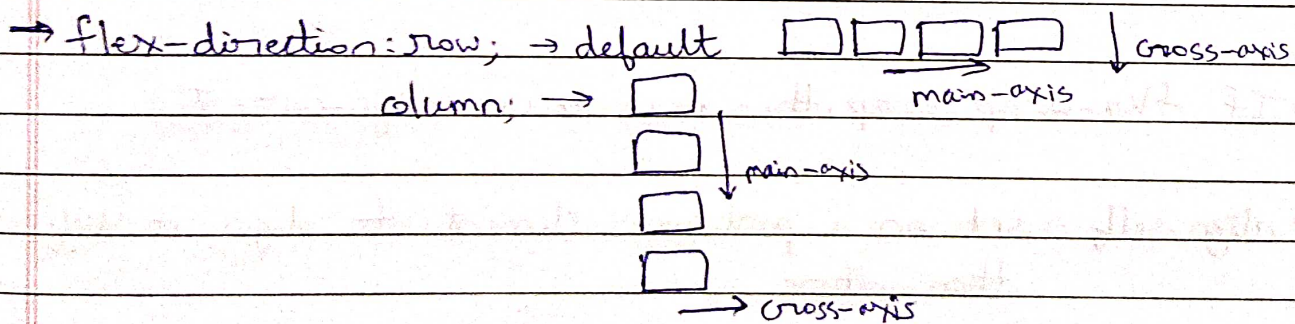 → flex-direction: row; → default cross-axis
main-axis
column; →
main-axis
→ cross-axis